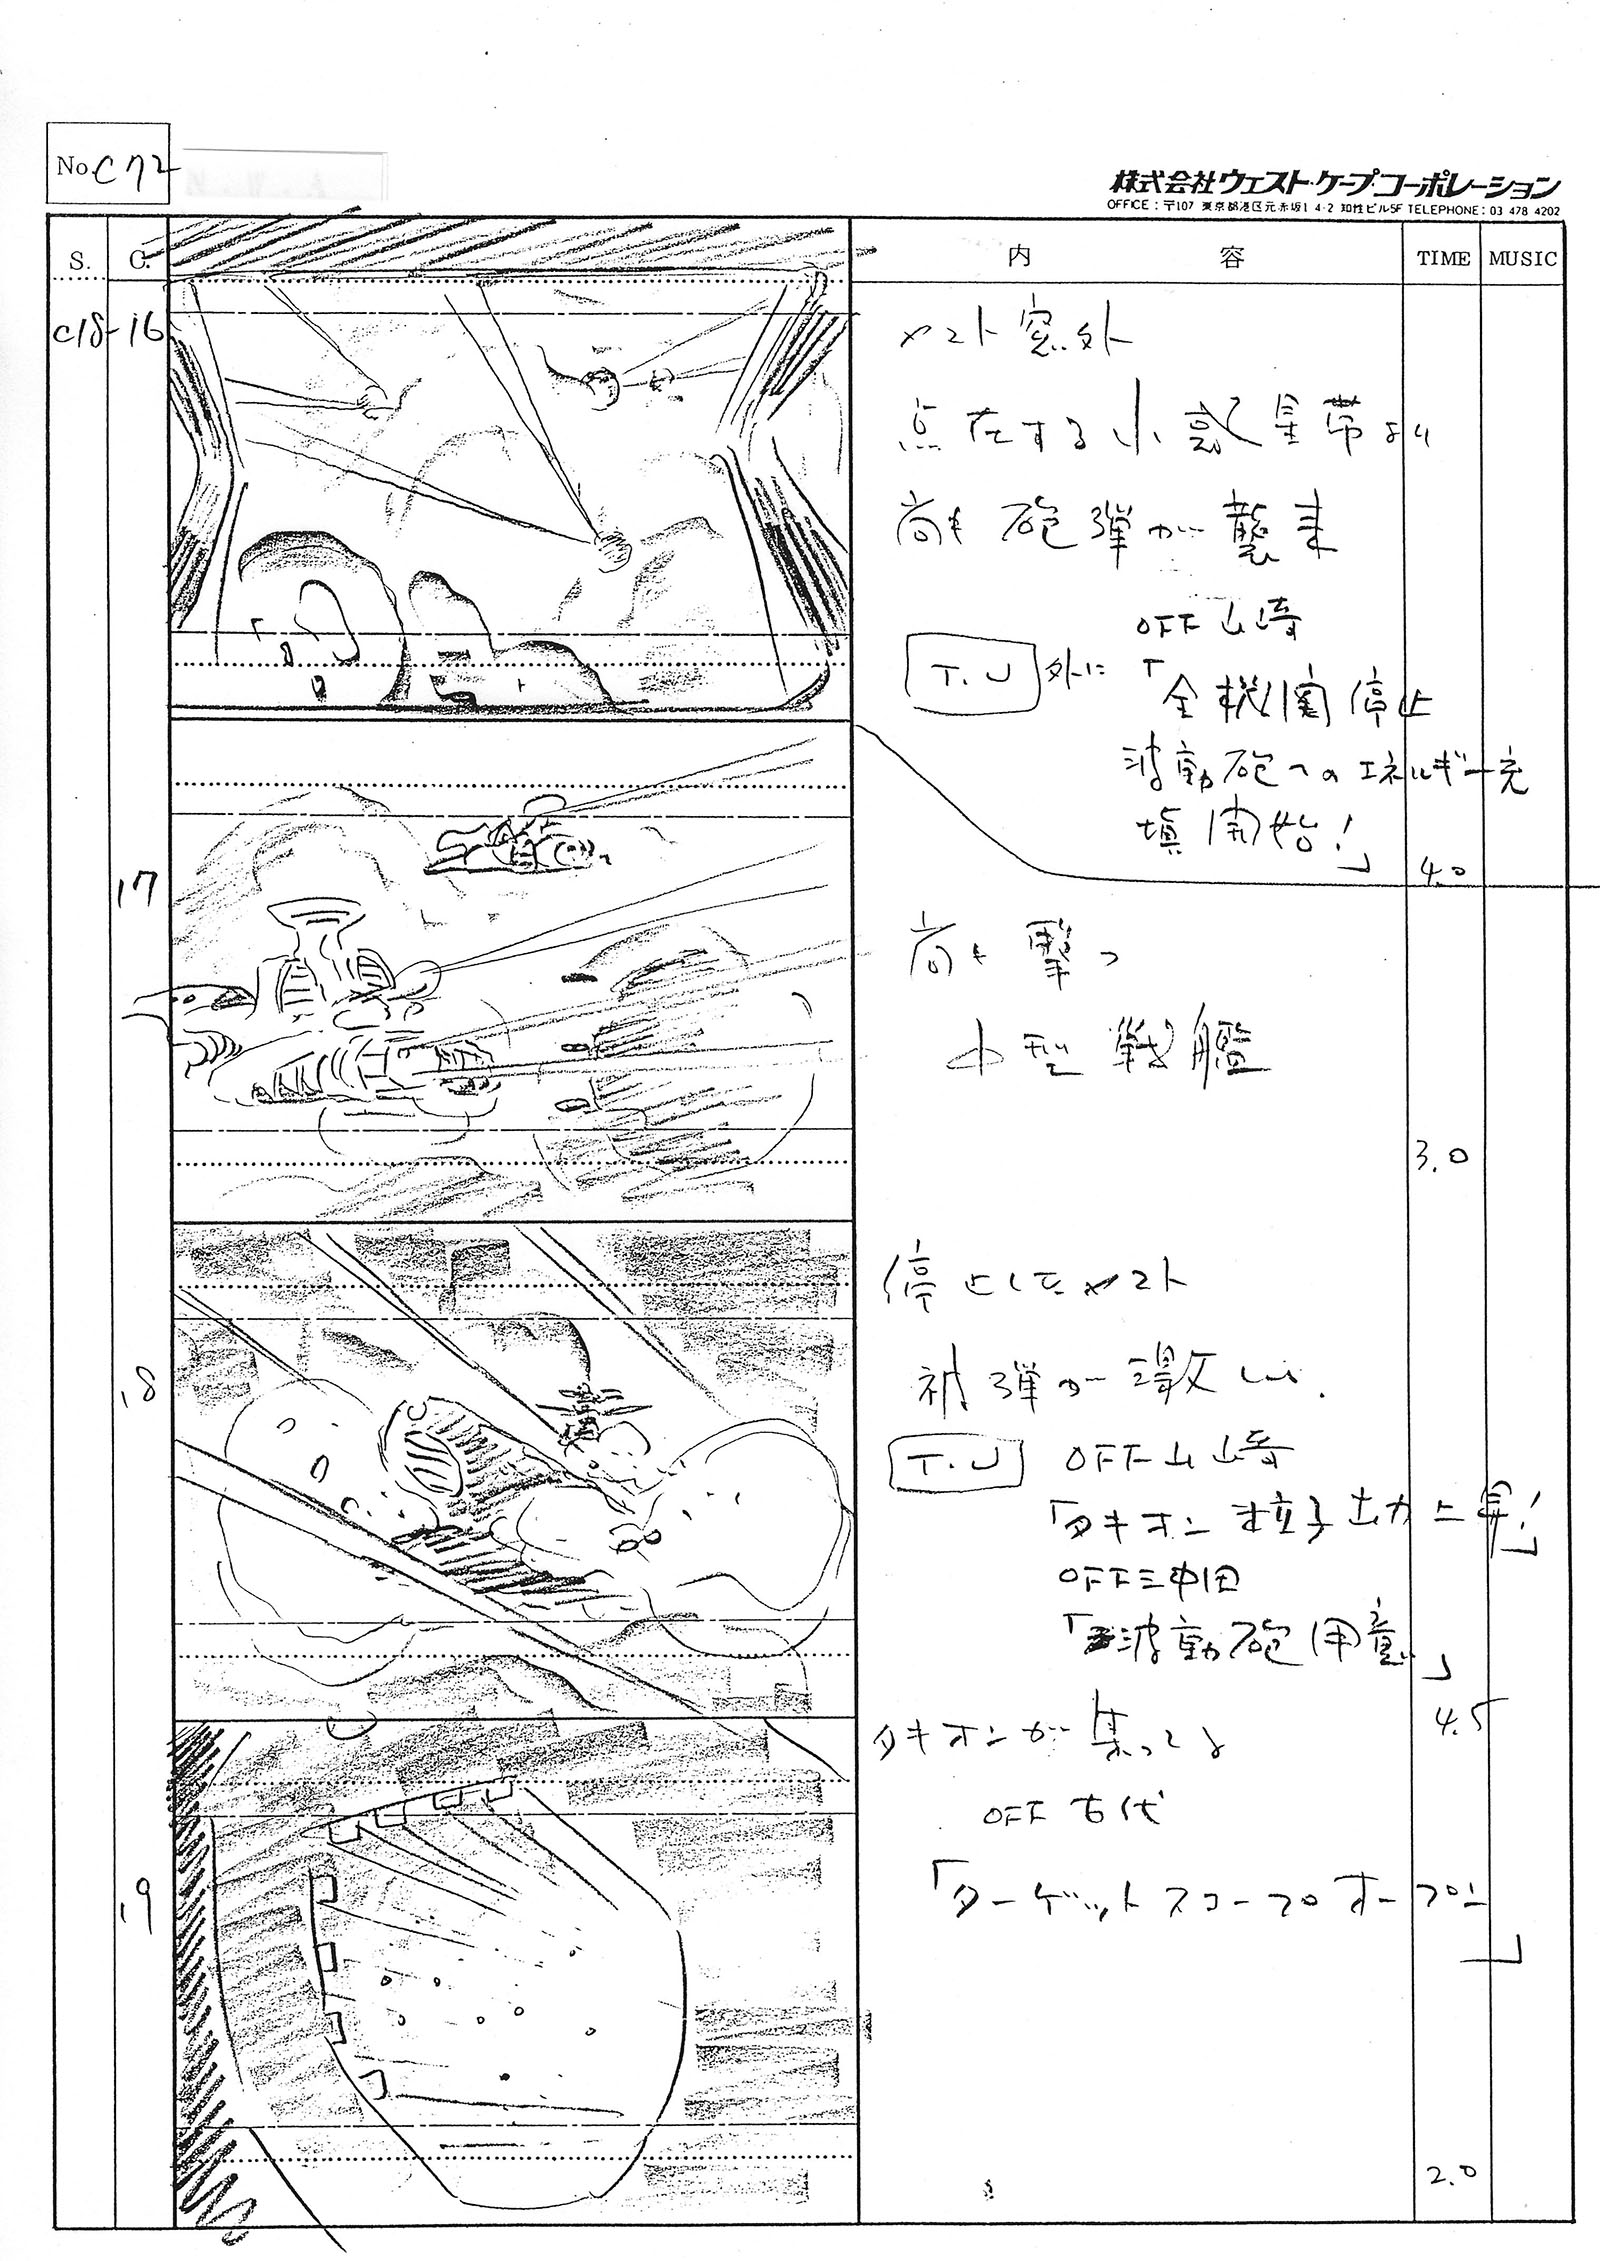 No C72
株式会社ウェスト・ケープ・コーポレーション
OFFICE：〒107 東京都港区元赤坂1-4-2 知性ビル5F TELEPHONE：03 478 4202
S. C. 内容 TIME MUSIC
C18-16
ヤマト窓外
点在する小惑星帯より
尚も砲弾が襲来
OFF山崎
T.U 外に「全機関停止
波動砲へのエネルギー充
填開始！」
4.0
17
尚も撃つ
中型戦艦
3.0
18
停止したヤマト
被弾が激しい.
T.U OFF山崎
「タキオン粒子出力上昇！」
OFF
「波動砲用意」
4.5
19
タキオンが集ってる
OFF古代
「ターゲットスコープオープン」
2.0